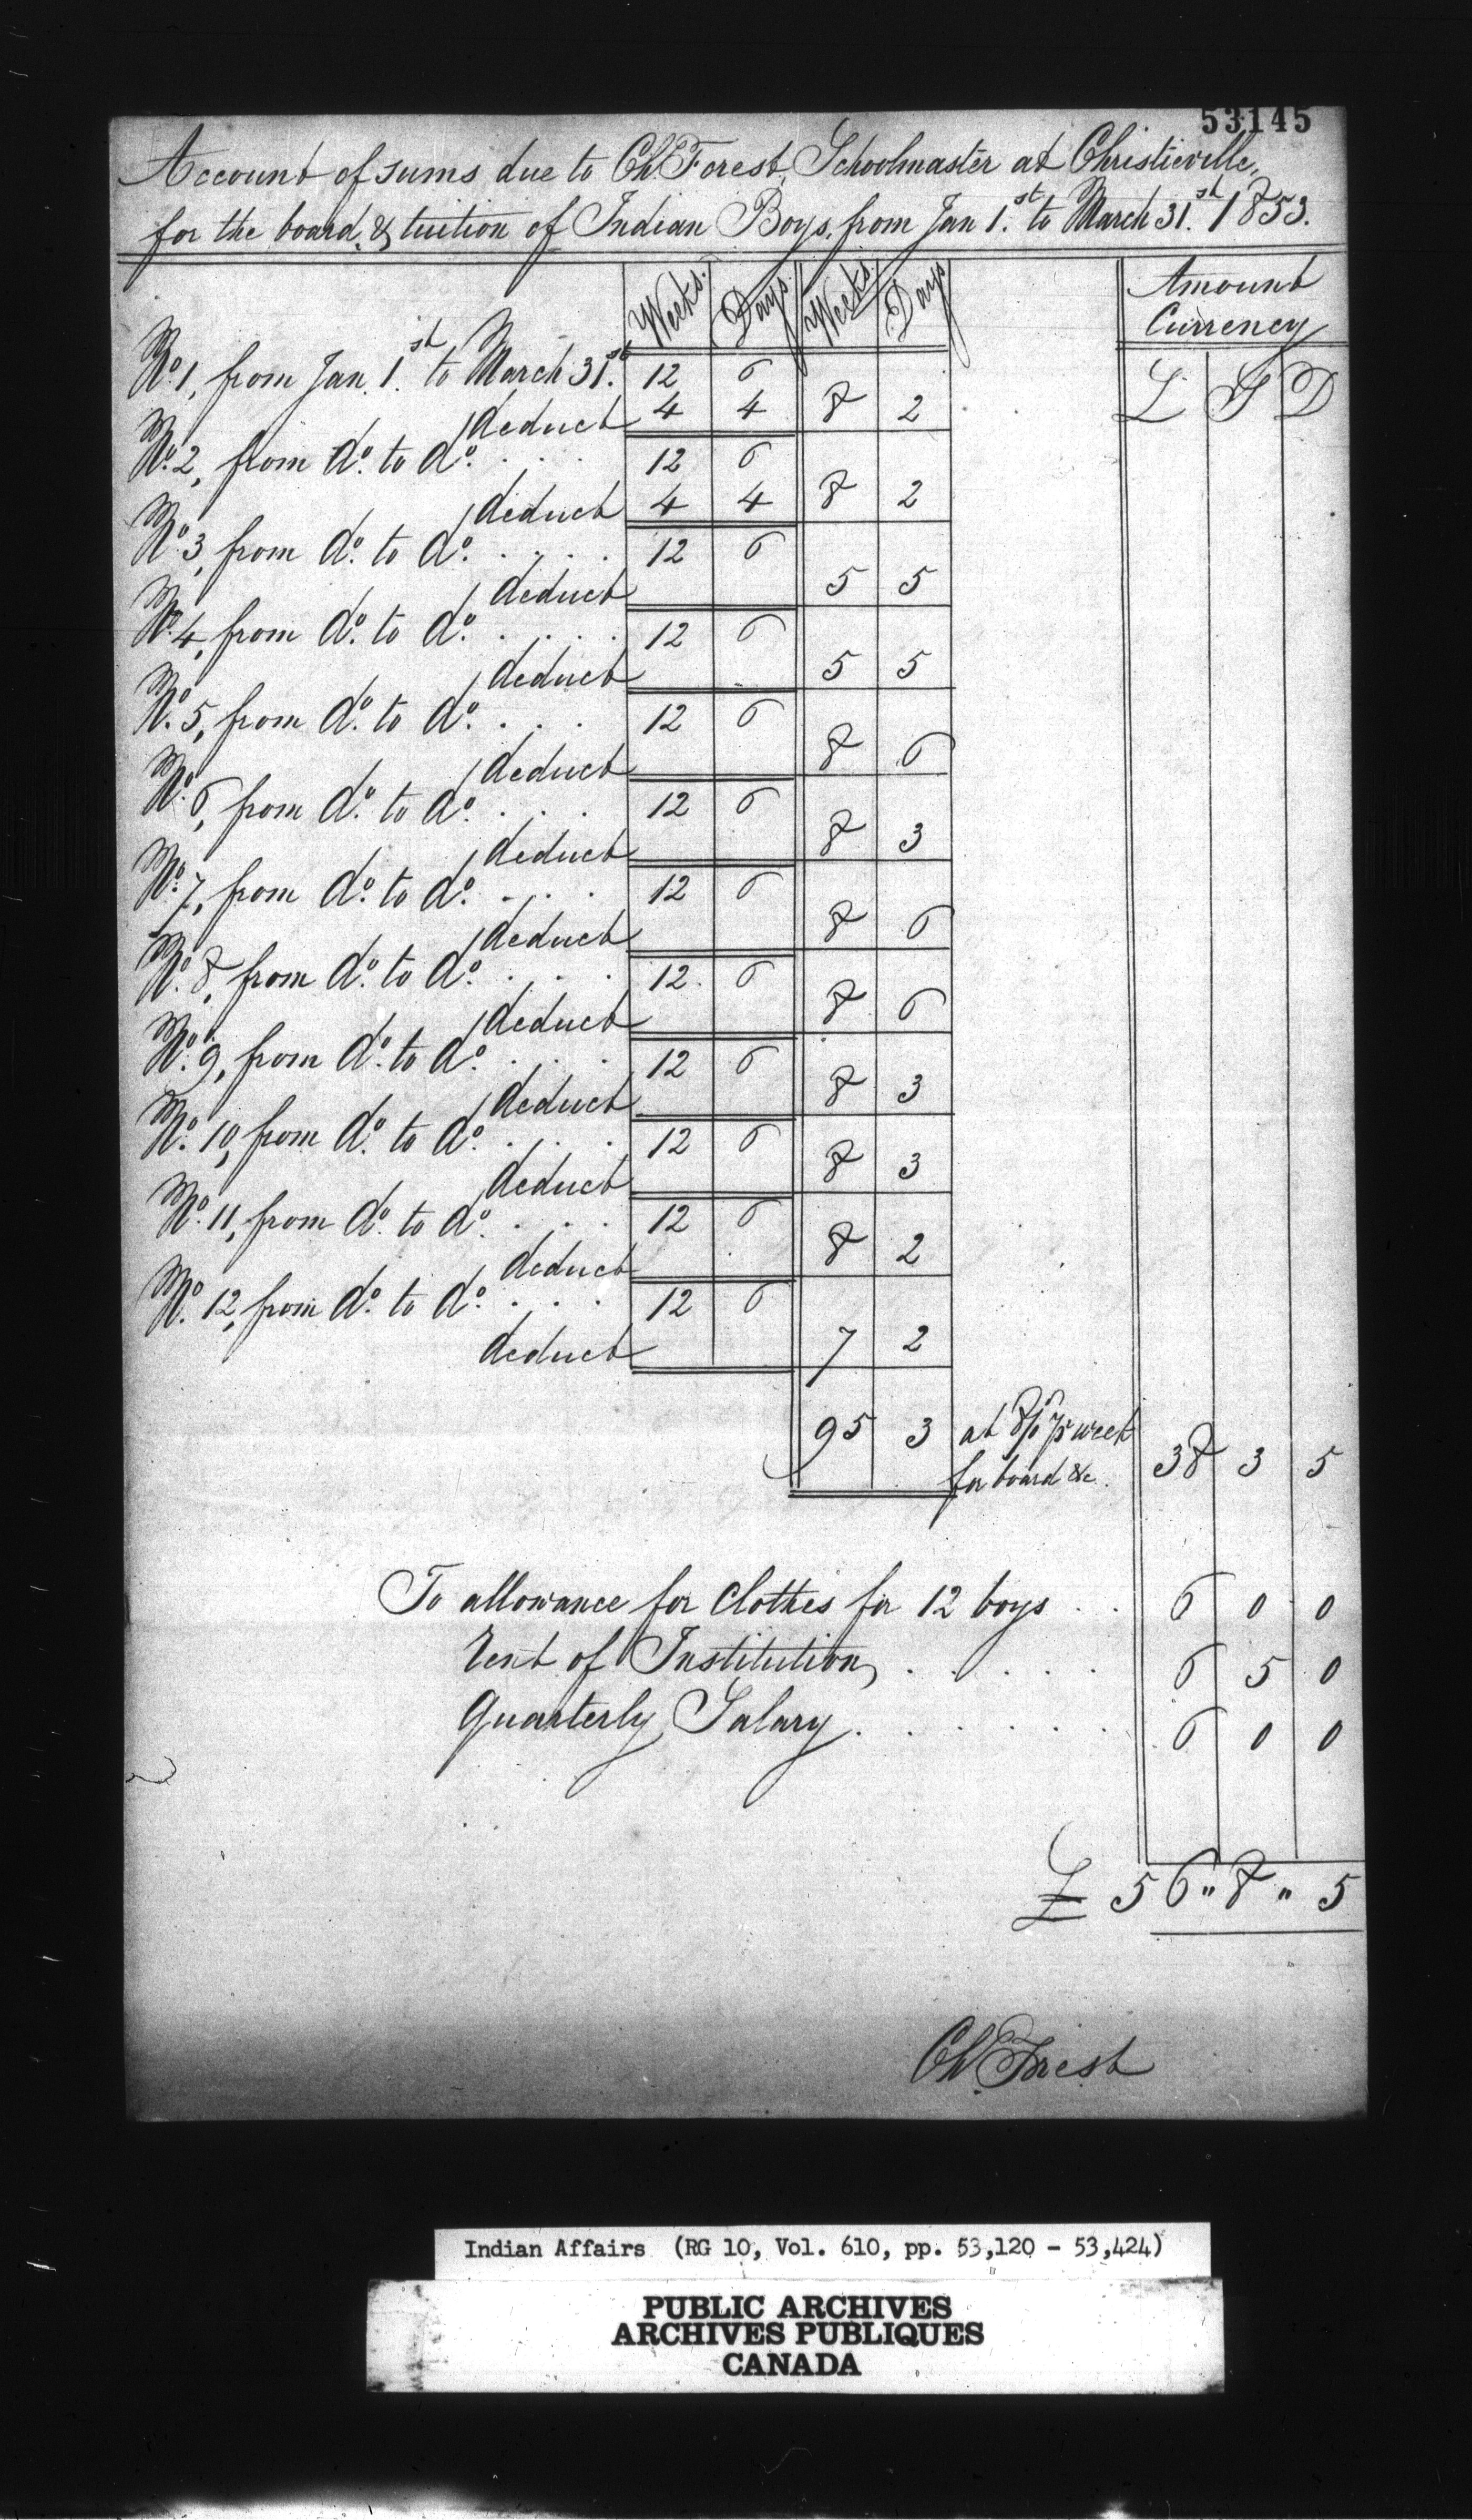 53145
Account of sums due to Ch. Forest, Schoolmaster at Christieville,
for the board, & tuition of Indian Boys, from Jan 1.st to March 31.st 1853.
Weeks. Days Weeks. Days Amount
Currency
£ S D
No. 1, from Jan. 1.st to March 31.st 12 6
deduct 4 4 8 2
No. 2, from do. to do. . . . 12 6
deduct 4 4 8 2
No. 3, from do. to do. . . . . 12 6
deduct 5 5
No. 4, from do. to do. . . . . 12 6
deduct 5 5
No. 5, from do. to do. . . . 12 6
deduct 8 6
No. 6, from do. to do. . . . 12 6
deduct 8 3
No. 7, from do. to do. . . . 12 6
deduct 8 6
No. 8, from do. to do. . . . 12. 6
deduct 8 6
No. 9, from do. to do. . . . 12 6
deduct 8 3
No. 10, from do. to do. . . . 12 6
deduct 8 3
No. 11, from do. to do. . . . 12 6
deduct 8 2
No. 12, from do. to do. . . . 12 6
deduct 7 2
95 3 at week
for board &c. 38 3 5
To allowance for Clothes for 12 boys . . 6 0 0
Rent of Institution, . . . . . 6 5 0
Quarterly Salary. . . . . . 6 0 0
£ 56 " 8 " 5
Ch. Forest
Indian Affairs (RG 10, Vol. 610, pp. 53,120 - 53,424)
PUBLIC ARCHIVES
ARCHIVES PUBLIQUES
CANADA